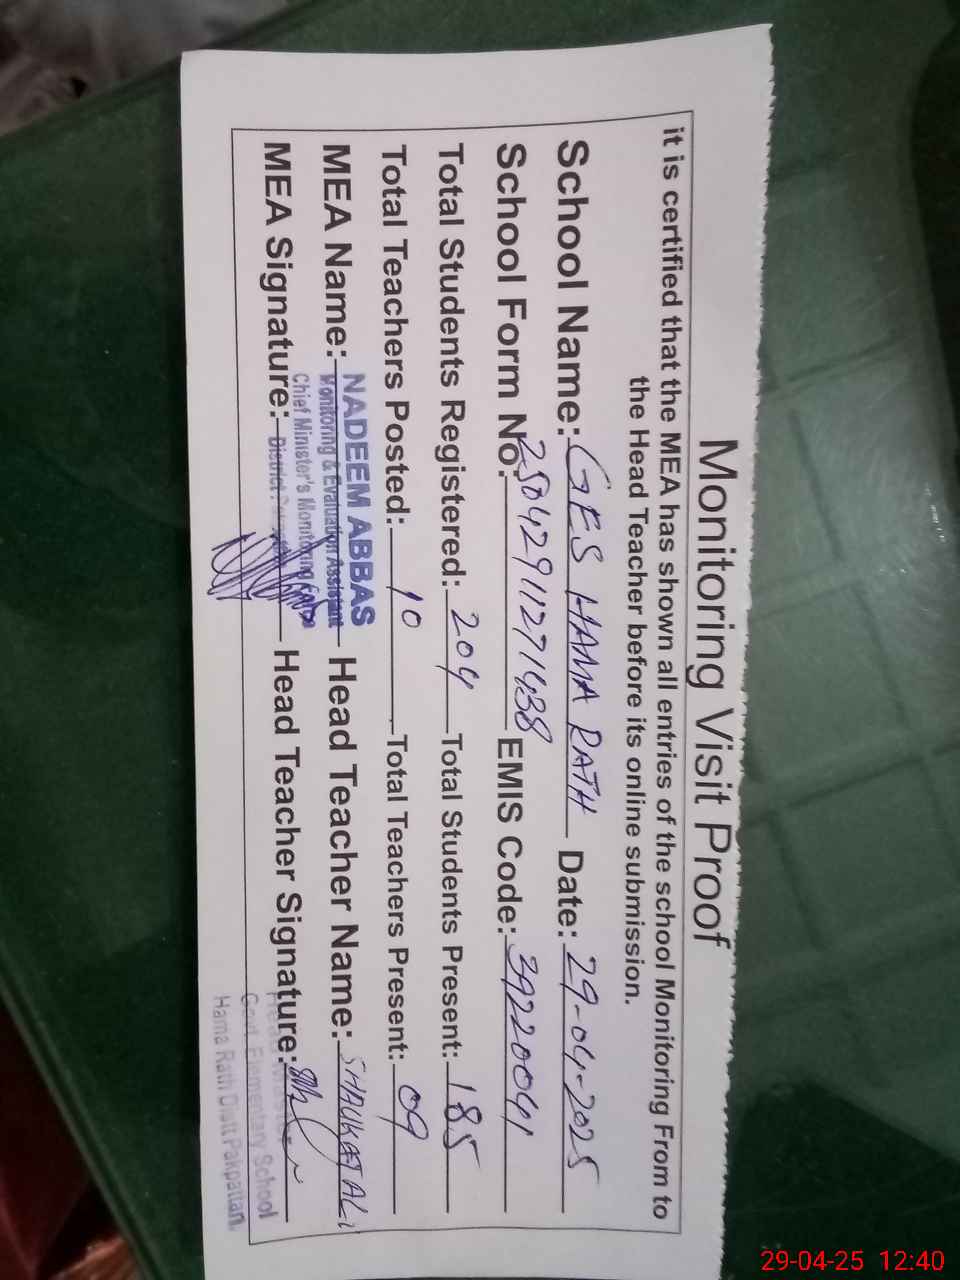 Monitoring Visit Proof
it is certified that the MEA has shown all entries of the school Monitoring From to
the Head Teacher before its online submission.
School Name: GES HAMA RATH Date: 29-04-2025
School Form No. 25042911271438 EMIS Code: 39220041
Total Students Registered: 204 Total Students Present: 185
Total Teachers Posted: 10 Total Teachers Present: 09
MEA Name: NADEEM ABBAS Head Teacher Name: SHAUKAT ALI
Monitoring & Evaluation Assistant
Chief Minister's Monitoring
MEA Signature: District Head Teacher Signature:
Head Master
Govt. Elementary School
Hama Rath Distt Pakpattan.
29-04-25 12:40